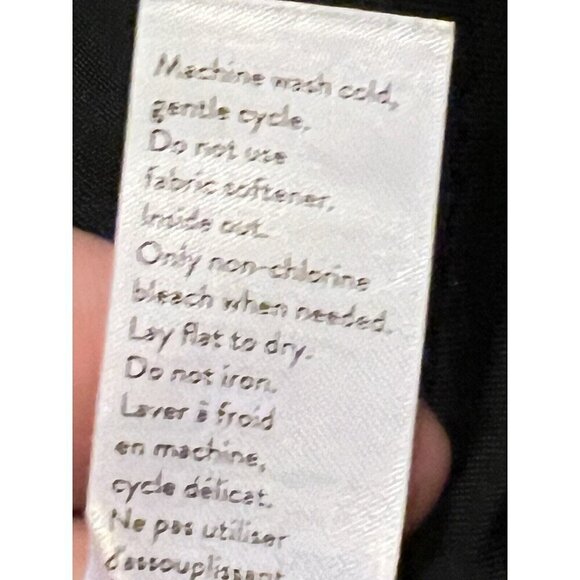 Machine wash cold,
gentle cycle.
Do not use
fabric softener.
Inside out.
Only non-chlorine
bleach when needed.
Lay flat to dry.
Do not iron.
Laver à froid
en machine,
cycle délicat.
Ne pas utiliser
d'assouplissant